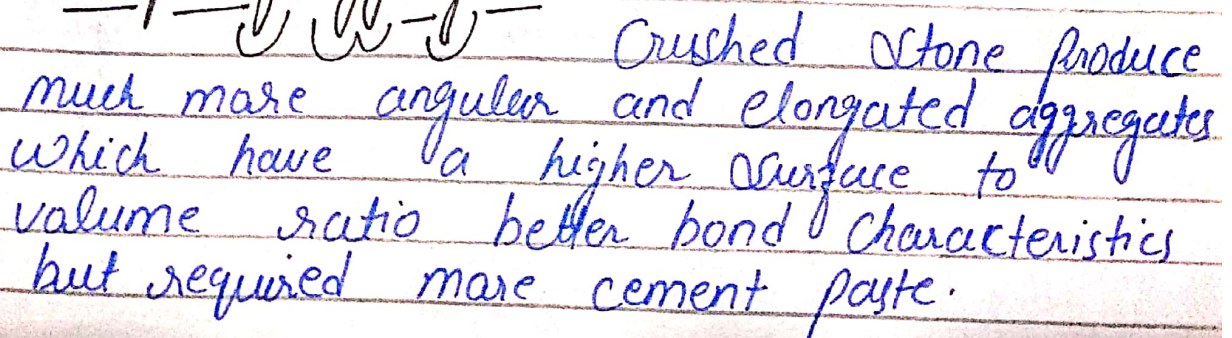 Crushed Stone Produce
much more angular and elongated aggregates
which have a higher Surface to
volume ratio better bond characteristics
but required more cement paste.